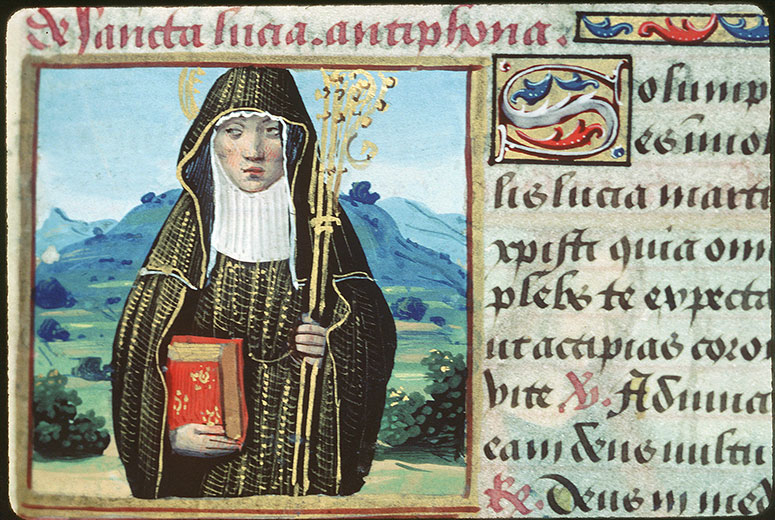 De sancta lucia. antiphona.
Colump
es immo
lis lucia marti
xpisti quia om
plebs te expecta
ut accipias coro
vite V. Adiuua
eam deus uultu
Re. Deus in med